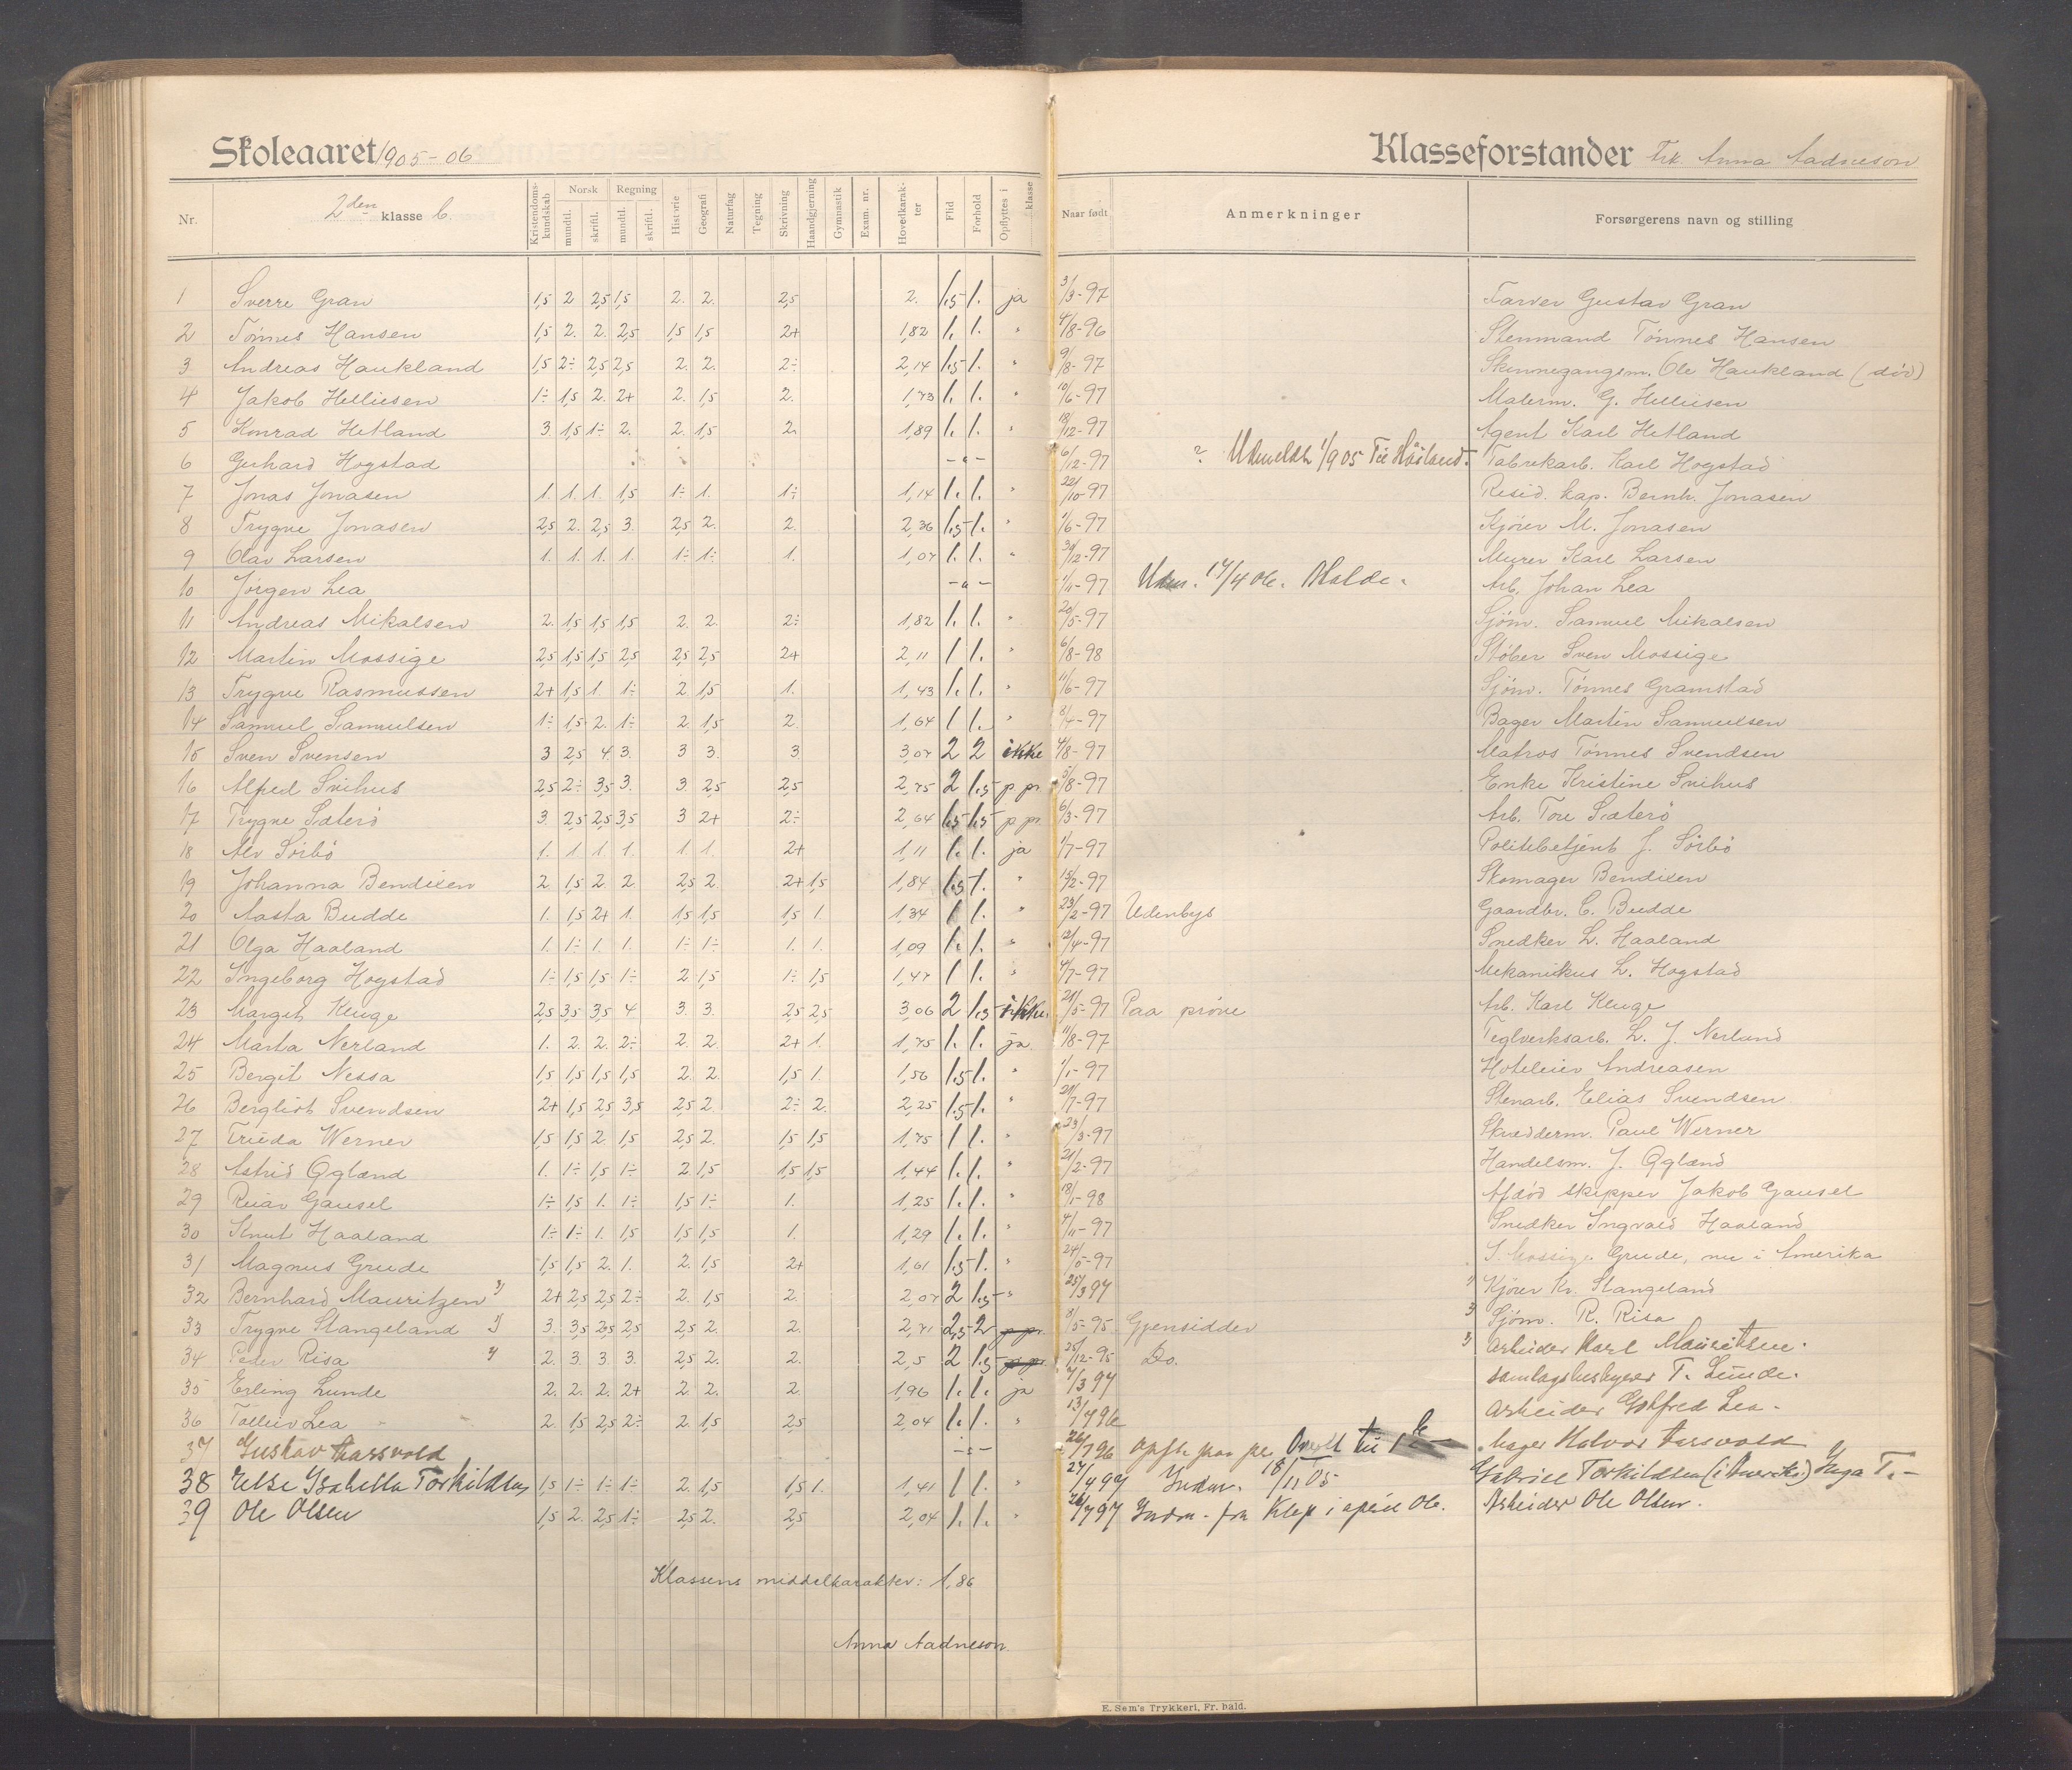 Skoleaaret 1905-06
Klasseforstander Frk. Anna Aadneson
Nr. 2den klasse C. Kristendoms-kundskab Norsk mundtl. skriftl. Regning mundtl. skriftl. Historie Geografi Naturfag Tegning Skrivning Haandgjerning Gymnastik Exam. nr. Hovedkarakter Flid Forhold Opflyttes i klasse Naar født Anmerkninger Forsørgerens navn og stilling
1 Sverre Gran 1,5 2 2,5 1,5 2. 2. 2,5 2. 1.5 1. ja 3/3-97 Farver Gustav Gran
2 Tønnes Hansen 1,5 2. 2. 2,5 1,5 1,5 2+ 1,82 1. 1. " 4/8-96 Stenmand Tønnes Hansen
3 Andreas Haukland 1,5 2÷ 2,5 2,5 2. 2. 2÷ 2,14 1.5 1. " 9/8-97 Skinnegangsm. Ole Haukland (død)
4 Jakob Helliesen 1÷ 1,5 2. 2+ 2. 1,5 2. 1,73 1. 1. " 10/6-97 Malerm. G. Helliesen
5 Konrad Hetland 3. 1,5 1÷ 2. 2. 1,5 2. 1,89 1. 1. " 18/12-97 Agent Karl Hetland
6 Gerhard Hogstad -"- 6/12-97 ? Udmeldt 1/9 05 Til Håiland. Fabrikarb. Karl Hogstad
7 Jonas Jonasen 1. 1. 1. 1,5 1÷ 1. 1÷ 1,14 1. 1. " 22/10-97 Resid. kap. Bernh. Jonasen
8 Trygve Jonasen 2,5 2. 2,5 3. 2,5 2. 2. 2,36 1.5 1. " 1/6-97 Kjører M. Jonasen
9 Olav Larsen 1. 1. 1. 1. 1÷ 1÷ 1. 1,07 1. 1. " 30/12-97 Murer Karl Larsen
10 Jørgen Lea -"- 1/11-97 Udm. 17/4 06. Malde. Arb. Johan Lea
11 Andreas Mikalsen 2. 1,5 1,5 1,5 2. 2. 2÷ 1,82 1. 1. " 20/5-97 Sjøm. Samuel Mikalsen
12 Martin Mossige 2,5 1,5 1,5 2,5 2,5 2,5 2+ 2,11 1 1. " 6/8-98 Støber Sven Mossige
13 Trygve Rasmussen 2+ 1,5 1. 1÷ 2. 1,5 1. 1,43 1. 1. " 11/6-97 Sjøm. Tønnes Gramstad
14 Samuel Samuelsen 1÷ 1,5 2. 1÷ 2. 1,5 2. 1,64 1 1. " 8/4-97 Bager Martin Samuelsen
15 Sven Svensen 3 2,5 4. 3. 3 3. 3. 3,07 2 2 ikke 4/8-97 Matros Tønnes Svendsen
16 Alfred Svihus 2,5 2÷ 3,5 3. 3. 2,5 2,5 2,75 2 1.5 p.pr. 5/8-97 Enke Kristine Svihus
17 Trygve Sæterø 3. 2,5 2,5 3,5 3 2+ 2÷ 2,64 1.5 1.5 p.pr. 6/3-97 Arb. Tore Sæterø
18 Alv Sørbø 1. 1 1. 1. 1. 1. 2+ 1,11 1. 1. ja 1/7-97 Politibetjent J. Sørbø
19 Johanna Bendixen 2 1,5 2. 2. 2,5 2. 2+ 1,5 1,84 1.5 1. " 15/2-97 Skomager Bendixen
20 Aasta Budde 1. 1,5 2+ 1. 1,5 1,5 1,5 1. 1,34 1 1. " 23/2-97 Udenbys Gaardbr. C. Budde
21 Olga Haaland 1. 1÷ 1. 1. 1÷ 1÷ 1. 1. 1,09 1. 1. " 12/4-97 Snedker L. Haaland
22 Ingeborg Hogstad 1÷ 1,5 1,5 1÷ 2. 1,5 1÷ 1,5 1,47 1 1. " 4/7-97 Mekanikus L. Hogstad
23 Margit Kluge 2,5 3,5 3,5 4 3. 3. 2,5 2,5 3,06 2 1.5 ikke. 21/5-97 Paa prøve Arb. Karl Kluge
24 Marta Nerland 1. 2. 2. 2÷ 2. 2. 2+ 1. 1,75 1. 1. ja. 11/8-97 Teglverksarb. L. J. Nerland
25 Bergit Nessa 1,5 1,5 1,5 1,5 2. 2. 1,5 1. 1,56 1.5 1. " 1/1-97 Hoteleier Andreasen
26 Bergliot Svendsen 2+ 1,5 2,5 3,5 2,5 2. 2÷ 2. 2,25 1.5 1. " 29/7-97 Stenarb. Elias Svendsen
27 Frieda Werner 1,5 1,5 2. 1,5 2,5 2. 1,5 1,5 1,75 1 1. " 23/3-97 Skrædderm. Paul Werner
28 Astrid Øgland 1. 1÷ 1,5 1÷ 2. 1,5 1,5 1,5 1,44 1. 1. " 21/2-97 Handelsm. J. Øgland
29 Reiar Gausel 1÷ 1,5 1. 1÷ 1,5 1÷ 1. 1,25 1. 1. " 18/1-98 Afdød skipper Jakob Gausel
30 Knut Haaland 1÷ 1÷ 1. 1,5 1,5 1,5 1. 1,29 1. 1. " 4/11-97 Snedker Ingvald Haaland
31 Magnus Grude 1,5 1,5 2. 1. 2. 1,5 2+ 1,61 1.5 1. " 24/5-97 S. Mossige Grude, nu i Amerika
32 Bernhard Mauritzen 3) 2+ 2,5 2,5 2÷ 2. 1,5 2. 2,07 2 1.5 " 25/3 97 1) Kjører Kr. Stangeland
33 Trygve Stangeland 1) 3. 3,5 2,5 2,5 2,5 2. 2. 2,71 2,5 2 p.pr. 8/5-95 Gjensidder 2) Sjøm. R. Risa
34 Peder Risa 2) 2. 3. 3. 3. 2,5 2. 2. 2,5 2 1.5 p.pr. 25/12-95 Do. 3) Arbeider Karl Mauritsen.
35 Erling Lunde 2. 2. 2. 2+ 2. 2. 2. 1,96 1. 1. ja 7/3 97 Samlagsbestyrer T. Lunde.
36 Tolleiv Lea 2. 1,5 2,5 2÷ 2. 1,5 2,5 2,04 1. 1. " 13/7 96 Arbeider Gotfred Lea.
37 Gustav Tarsvold -"- 26/7 96 Opfl. paa pr. Halvor Tarsvold
38 Else Isabella Torkildsen 1,5 1÷ 1÷ 1÷ 2. 1,5 1,5 1. 1,41 1 1. " 27/4 97 Indm. 18/11 05 Gabriel Torkildsen (i Amerika) Inga T.
39 Ole Olsen 1,5 2. 2,5 1÷ 2,5 2. 2,5 2,04 1. 1. " 26/7 97 Indm. fra Klep i april 06. Arbeider Ole Olsen.
Klassens middelkarakter: 1,86
Anna Aadneson.
E. Sem's Trykkeri, Fr. hald.